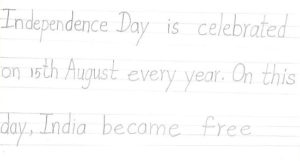 Independence Day is celebrated
on 15th August every year. On this
day, India became free